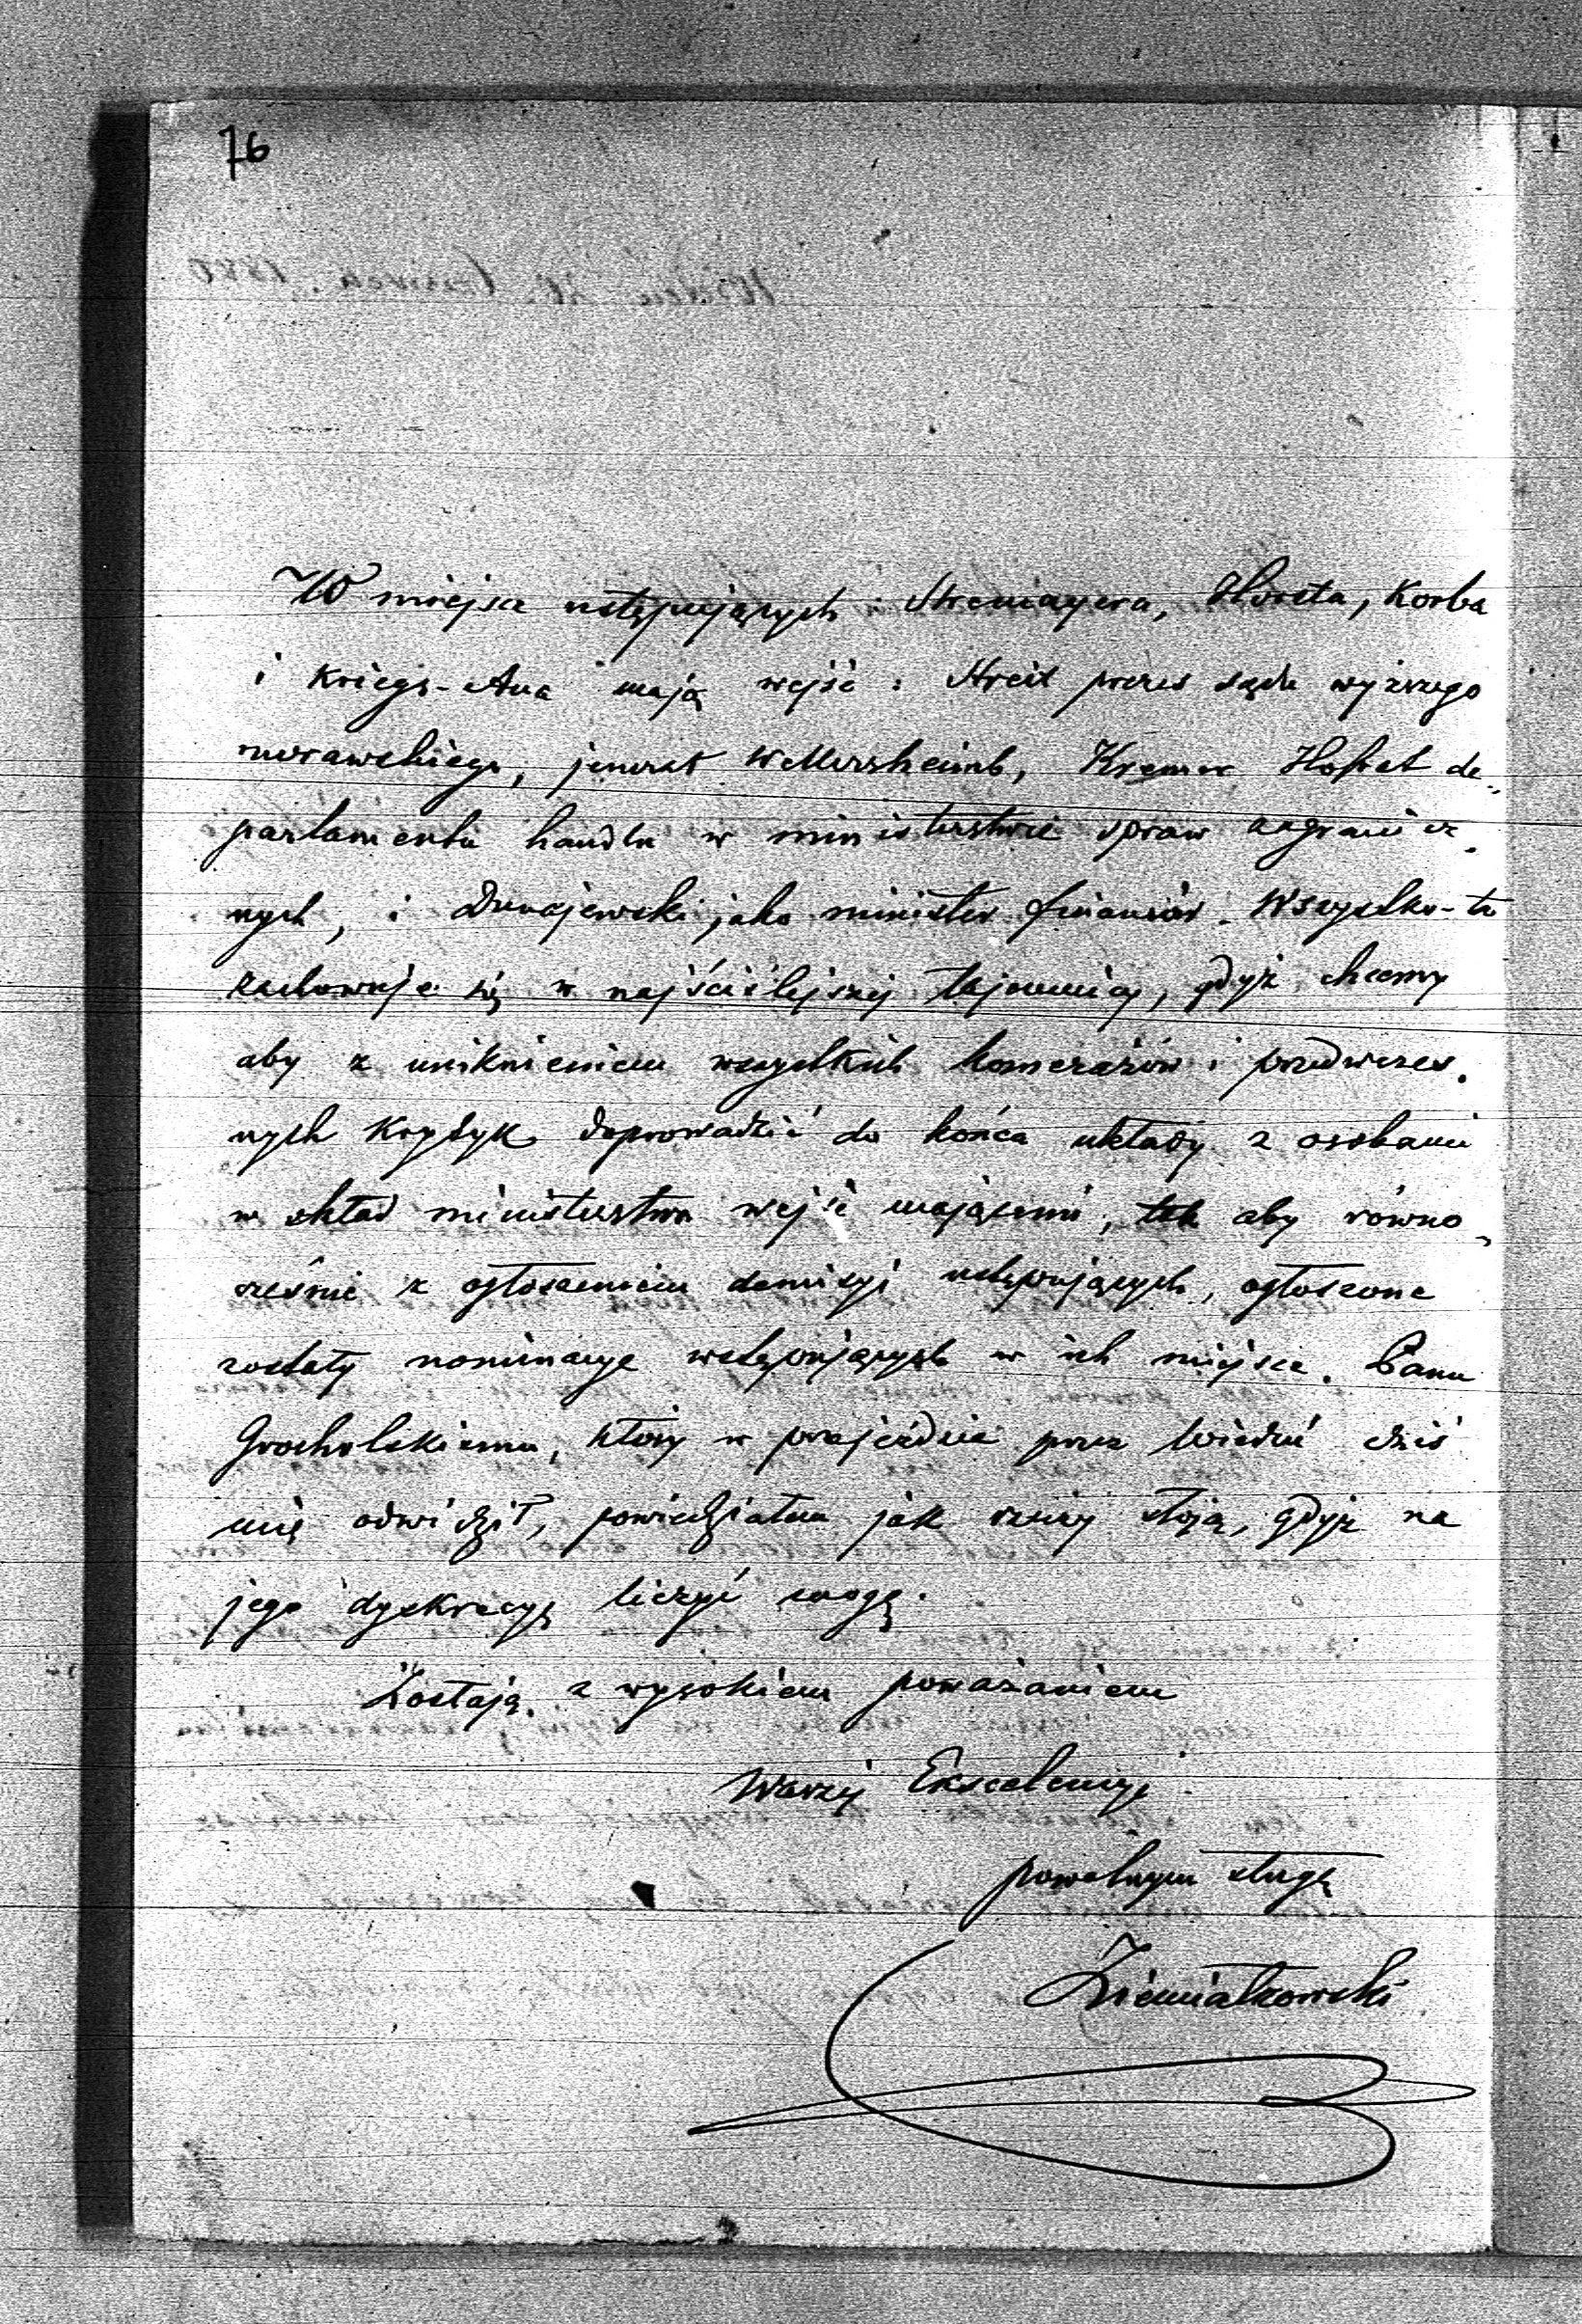 76
W miejsce ustępujących: Stremayera, Horsta, Korba
i Kriegs-Aua mają wejść: Streit prezes sądu wyższego
morawskiego, jenerał Welsersheimb, Kremer Hofrat de-
partamentu handlu w ministerstwie spraw zagranicz-
nych, i Dunajewski jako minister finansów. Wszystko-to
zachowuje się w najściślejszej tajemnicy, gdyż chcemy
aby z uniknieniem wszystkich komerażów i przedwczes-
nych krytyk doprowadzić do końca układy z osobami
w skład ministerstwa wejść mającemi, tak aby równo-
cześnie z ogłoszeniem demisyi ustępujących, ogłoszone
zostały nominacye wstępujących w ich miejsce. Panu
Grocholskiemu, który w przejeździe przez Wiedeń dziś
mię odwidził, powiedziałem jak rzeczy stoją, gdyż na
jego dyskrecyę liczyć mogę.
Zostaję z wysokiem poważaniem
Waszej Ekscelencyi
powolnym sługą
Ziemiałkowski